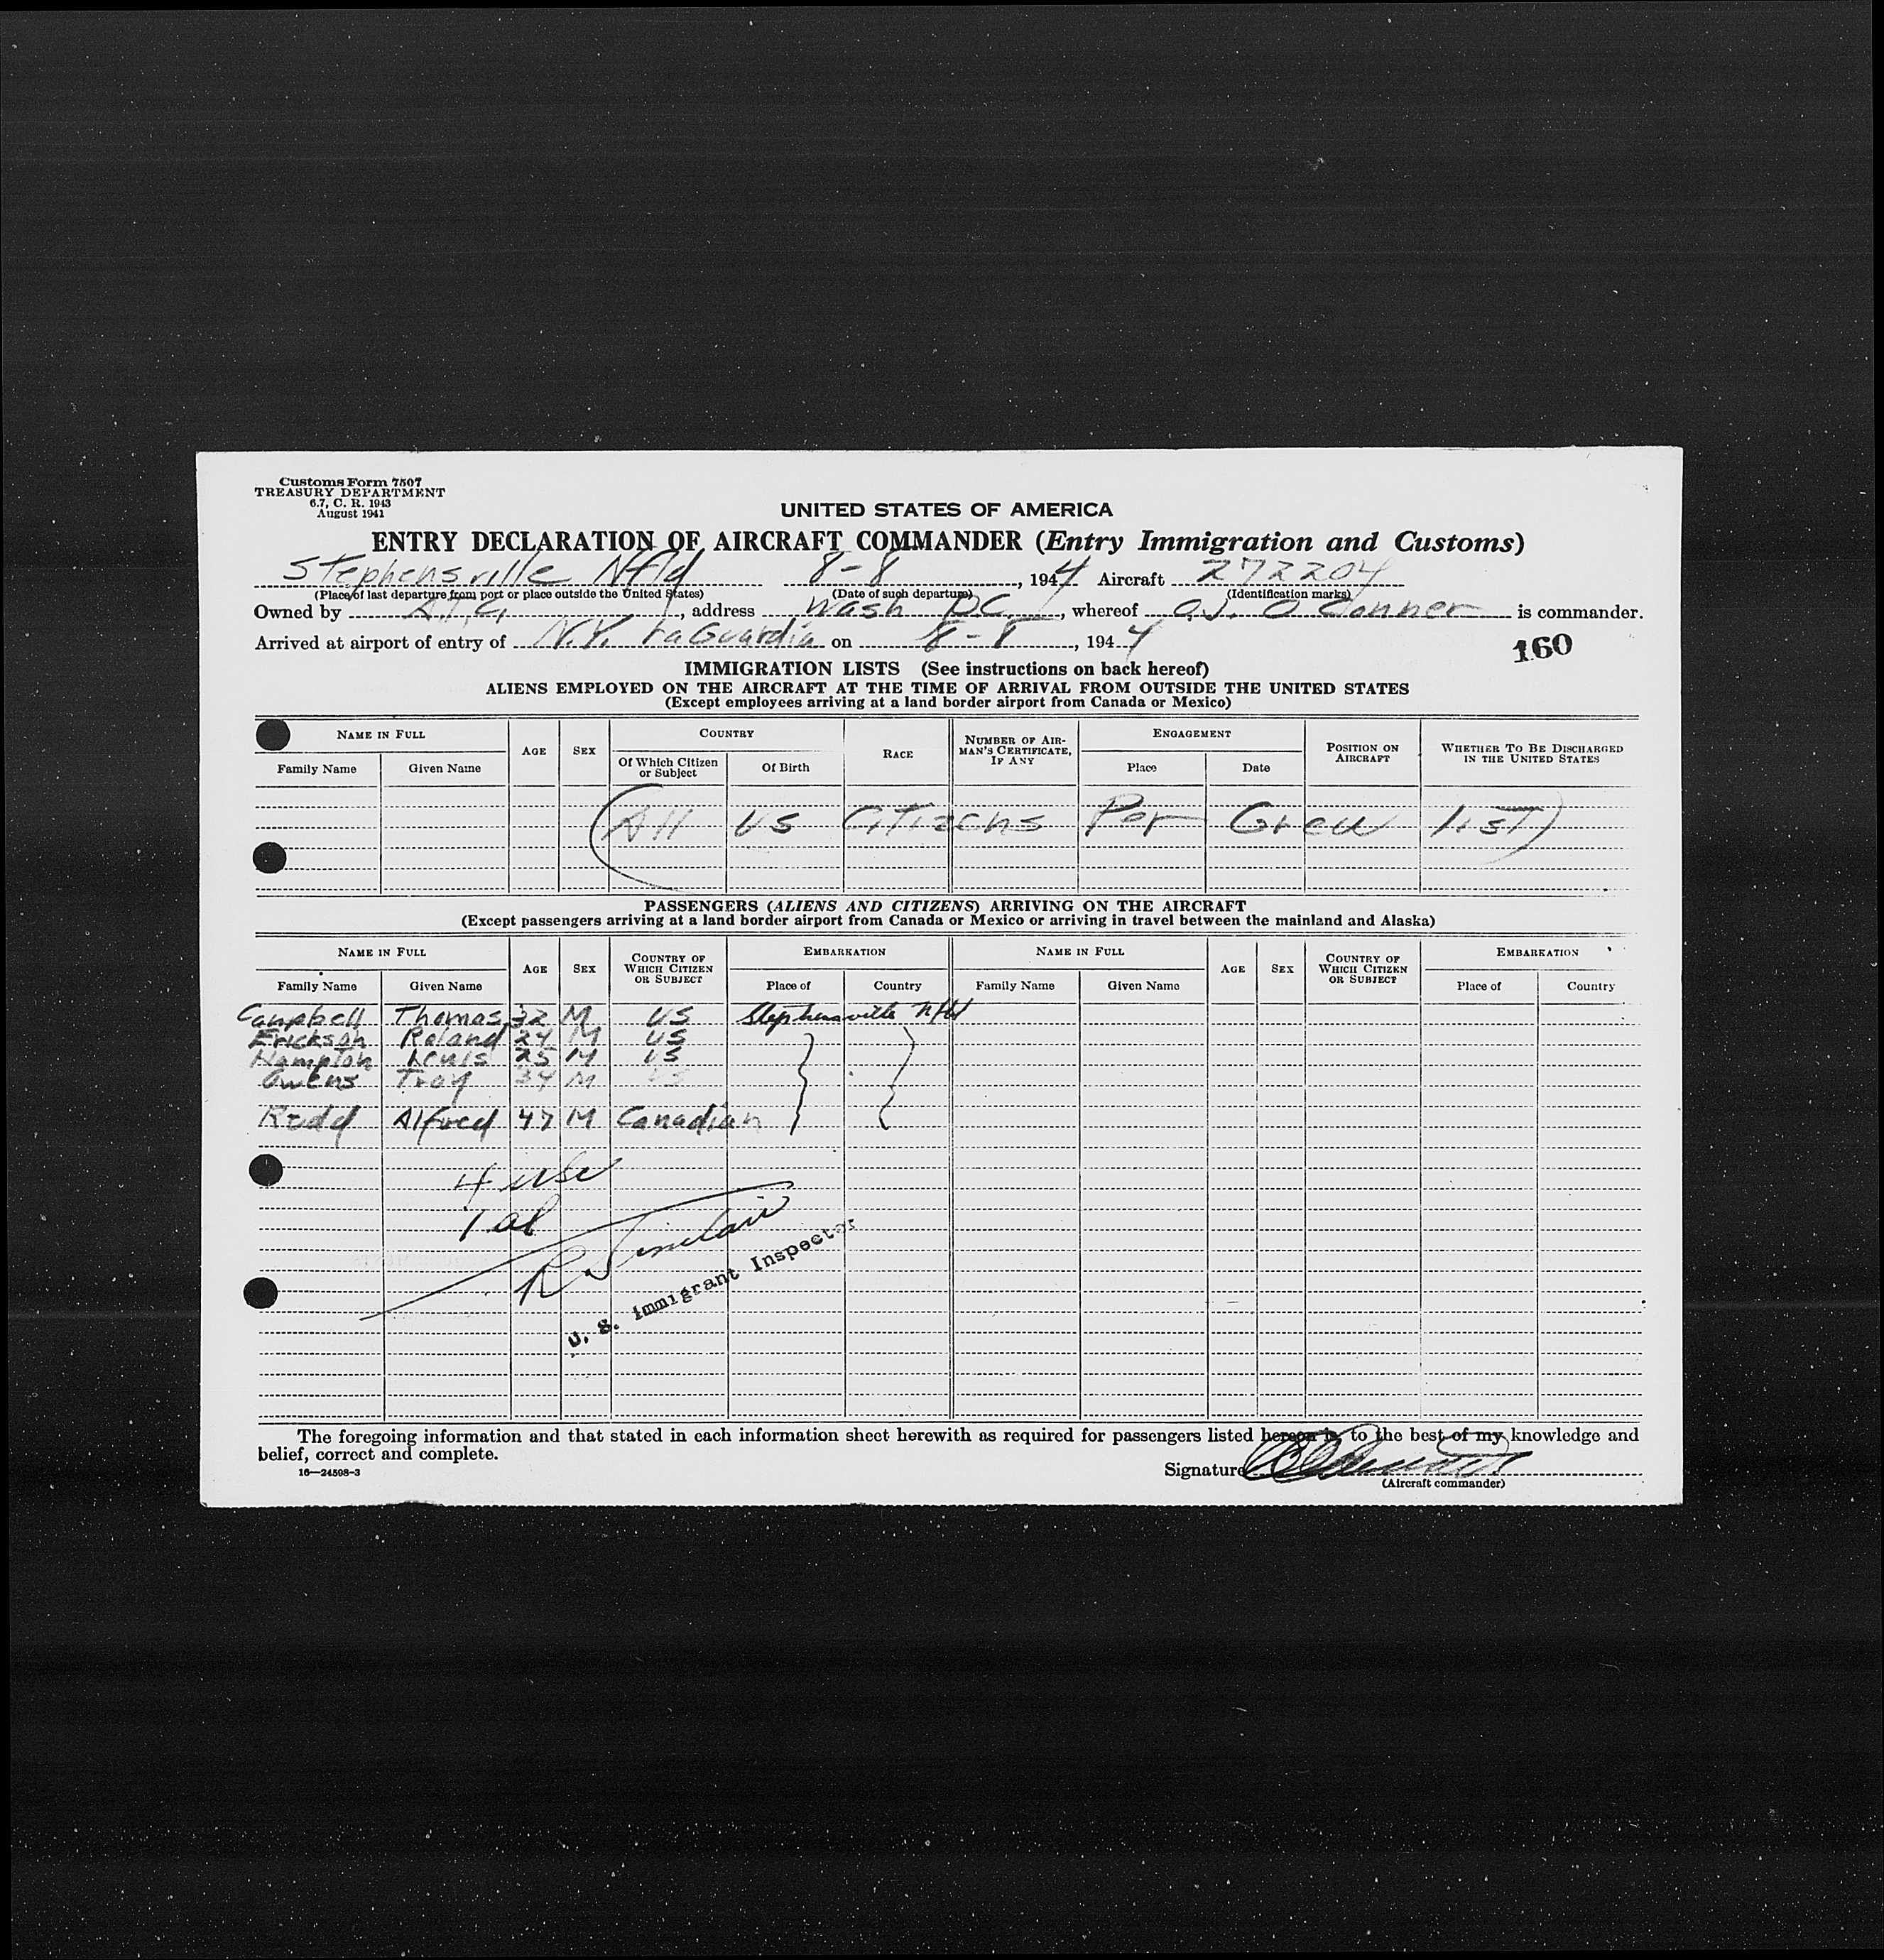 Customs Form 7507
TREASURY DEPARTMENT
6.7, C. R. 1943
August 1941
UNITED STATES OF AMERICA
ENTRY DECLARATION OF AIRCRAFT COMMANDER (Entry Immigration and Customs)
Stephensville Nfld 8-8, 1944 Aircraft 272204
(Place of last departure from port or place outside the United States) (Date of such departure) (Identification marks)
Owned by, address Wash DC, whereof O.J. O Conner is commander.
Arrived at airport of entry of N.Y. LaGuardia on 8-8, 1944
160
IMMIGRATION LISTS (See instructions on back hereof)
ALIENS EMPLOYED ON THE AIRCRAFT AT THE TIME OF ARRIVAL FROM OUTSIDE THE UNITED STATES
(Except employees arriving at a land border airport from Canada or Mexico)
NAME IN FULL AGE SEX COUNTRY RACE NUMBER OF AIRMAN'S CERTIFICATE, IF ANY ENGAGEMENT POSITION ON AIRCRAFT WHETHER TO BE DISCHARGED IN THE UNITED STATES
Family Name Given Name Of Which Citizen or Subject Of Birth Place Date
(All US Citizens Per Crew list)
PASSENGERS (ALIENS AND CITIZENS) ARRIVING ON THE AIRCRAFT
(Except passengers arriving at a land border airport from Canada or Mexico or arriving in travel between the mainland and Alaska)
NAME IN FULL AGE SEX COUNTRY OF WHICH CITIZEN OR SUBJECT EMBARKATION NAME IN FULL AGE SEX COUNTRY OF WHICH CITIZEN OR SUBJECT EMBARKATION
Family Name Given Name Place of Country Family Name Given Name Place of Country
Campbell Thomas 32 M US Stephensville Nfld
Erickson Roland 24 M US
Hampton Lewis 25 M US
Owens Troy 34 M US
Rudd Alfred 47 M Canadian
4 usc
1 al
R Sinclair
U. S. Immigrant Inspector
The foregoing information and that stated in each information sheet herewith as required for passengers listed hereon is, to the best of my knowledge and
belief, correct and complete.
16—24598-3
Signature
(Aircraft commander)